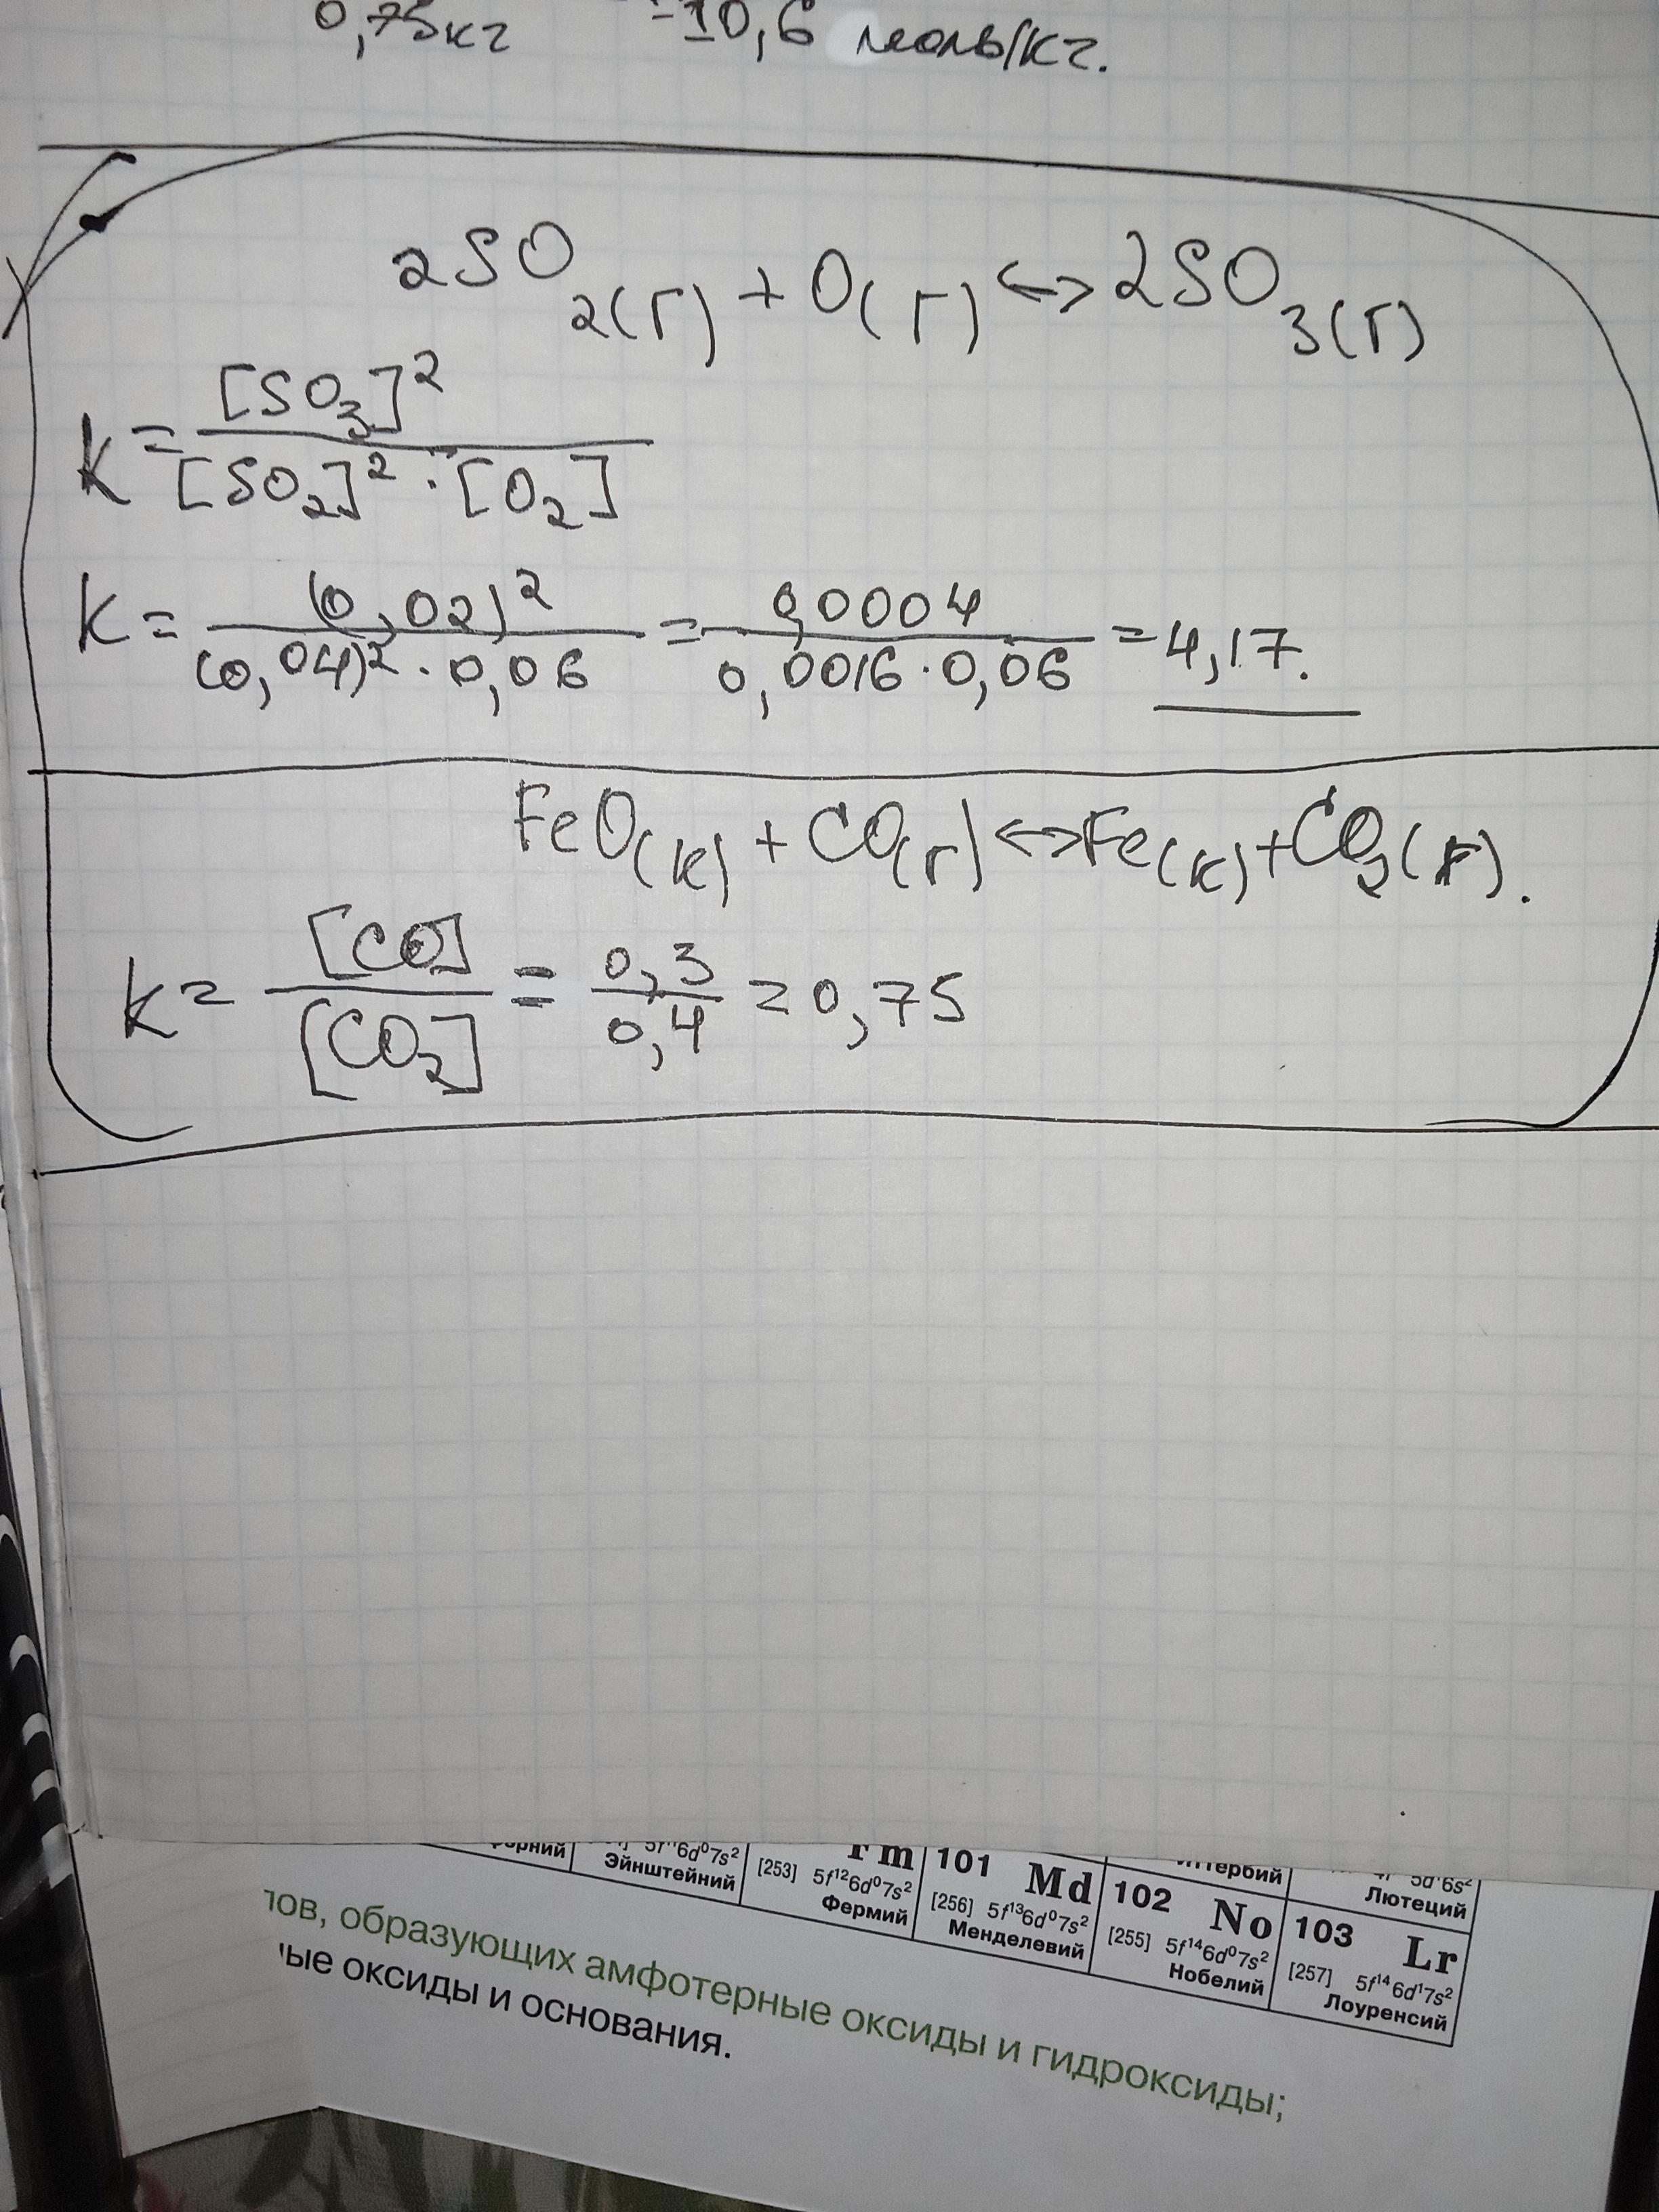 0,75кг =10,6 моль/кг.
2SO2(г) + O(г) <-> 2SO3(г)
K = [SO3]² / [SO2]² · [O2]
K = (0,02)² / (0,04)² · 0,06 = 0,0004 / 0,0016 · 0,06 = 4,17.
FeO(к) + CO(г) <-> Fe(к) + CO2(г).
K = [CO] / [CO2] = 0,3 / 0,4 = 0,75
5f¹¹6d⁰7s² Эйнштейний
Fm [253] 5f¹²6d⁰7s² Фермий
101 Md [256] 5f¹³6d⁰7s² Менделевий
102 No [255] 5f¹⁴6d⁰7s² Нобелий
5d¹6s² Лютеций
103 Lr [257] 5f¹⁴6d¹7s² Лоуренсий
образующих амфотерные оксиды и гидроксиды;
оксиды и основания.